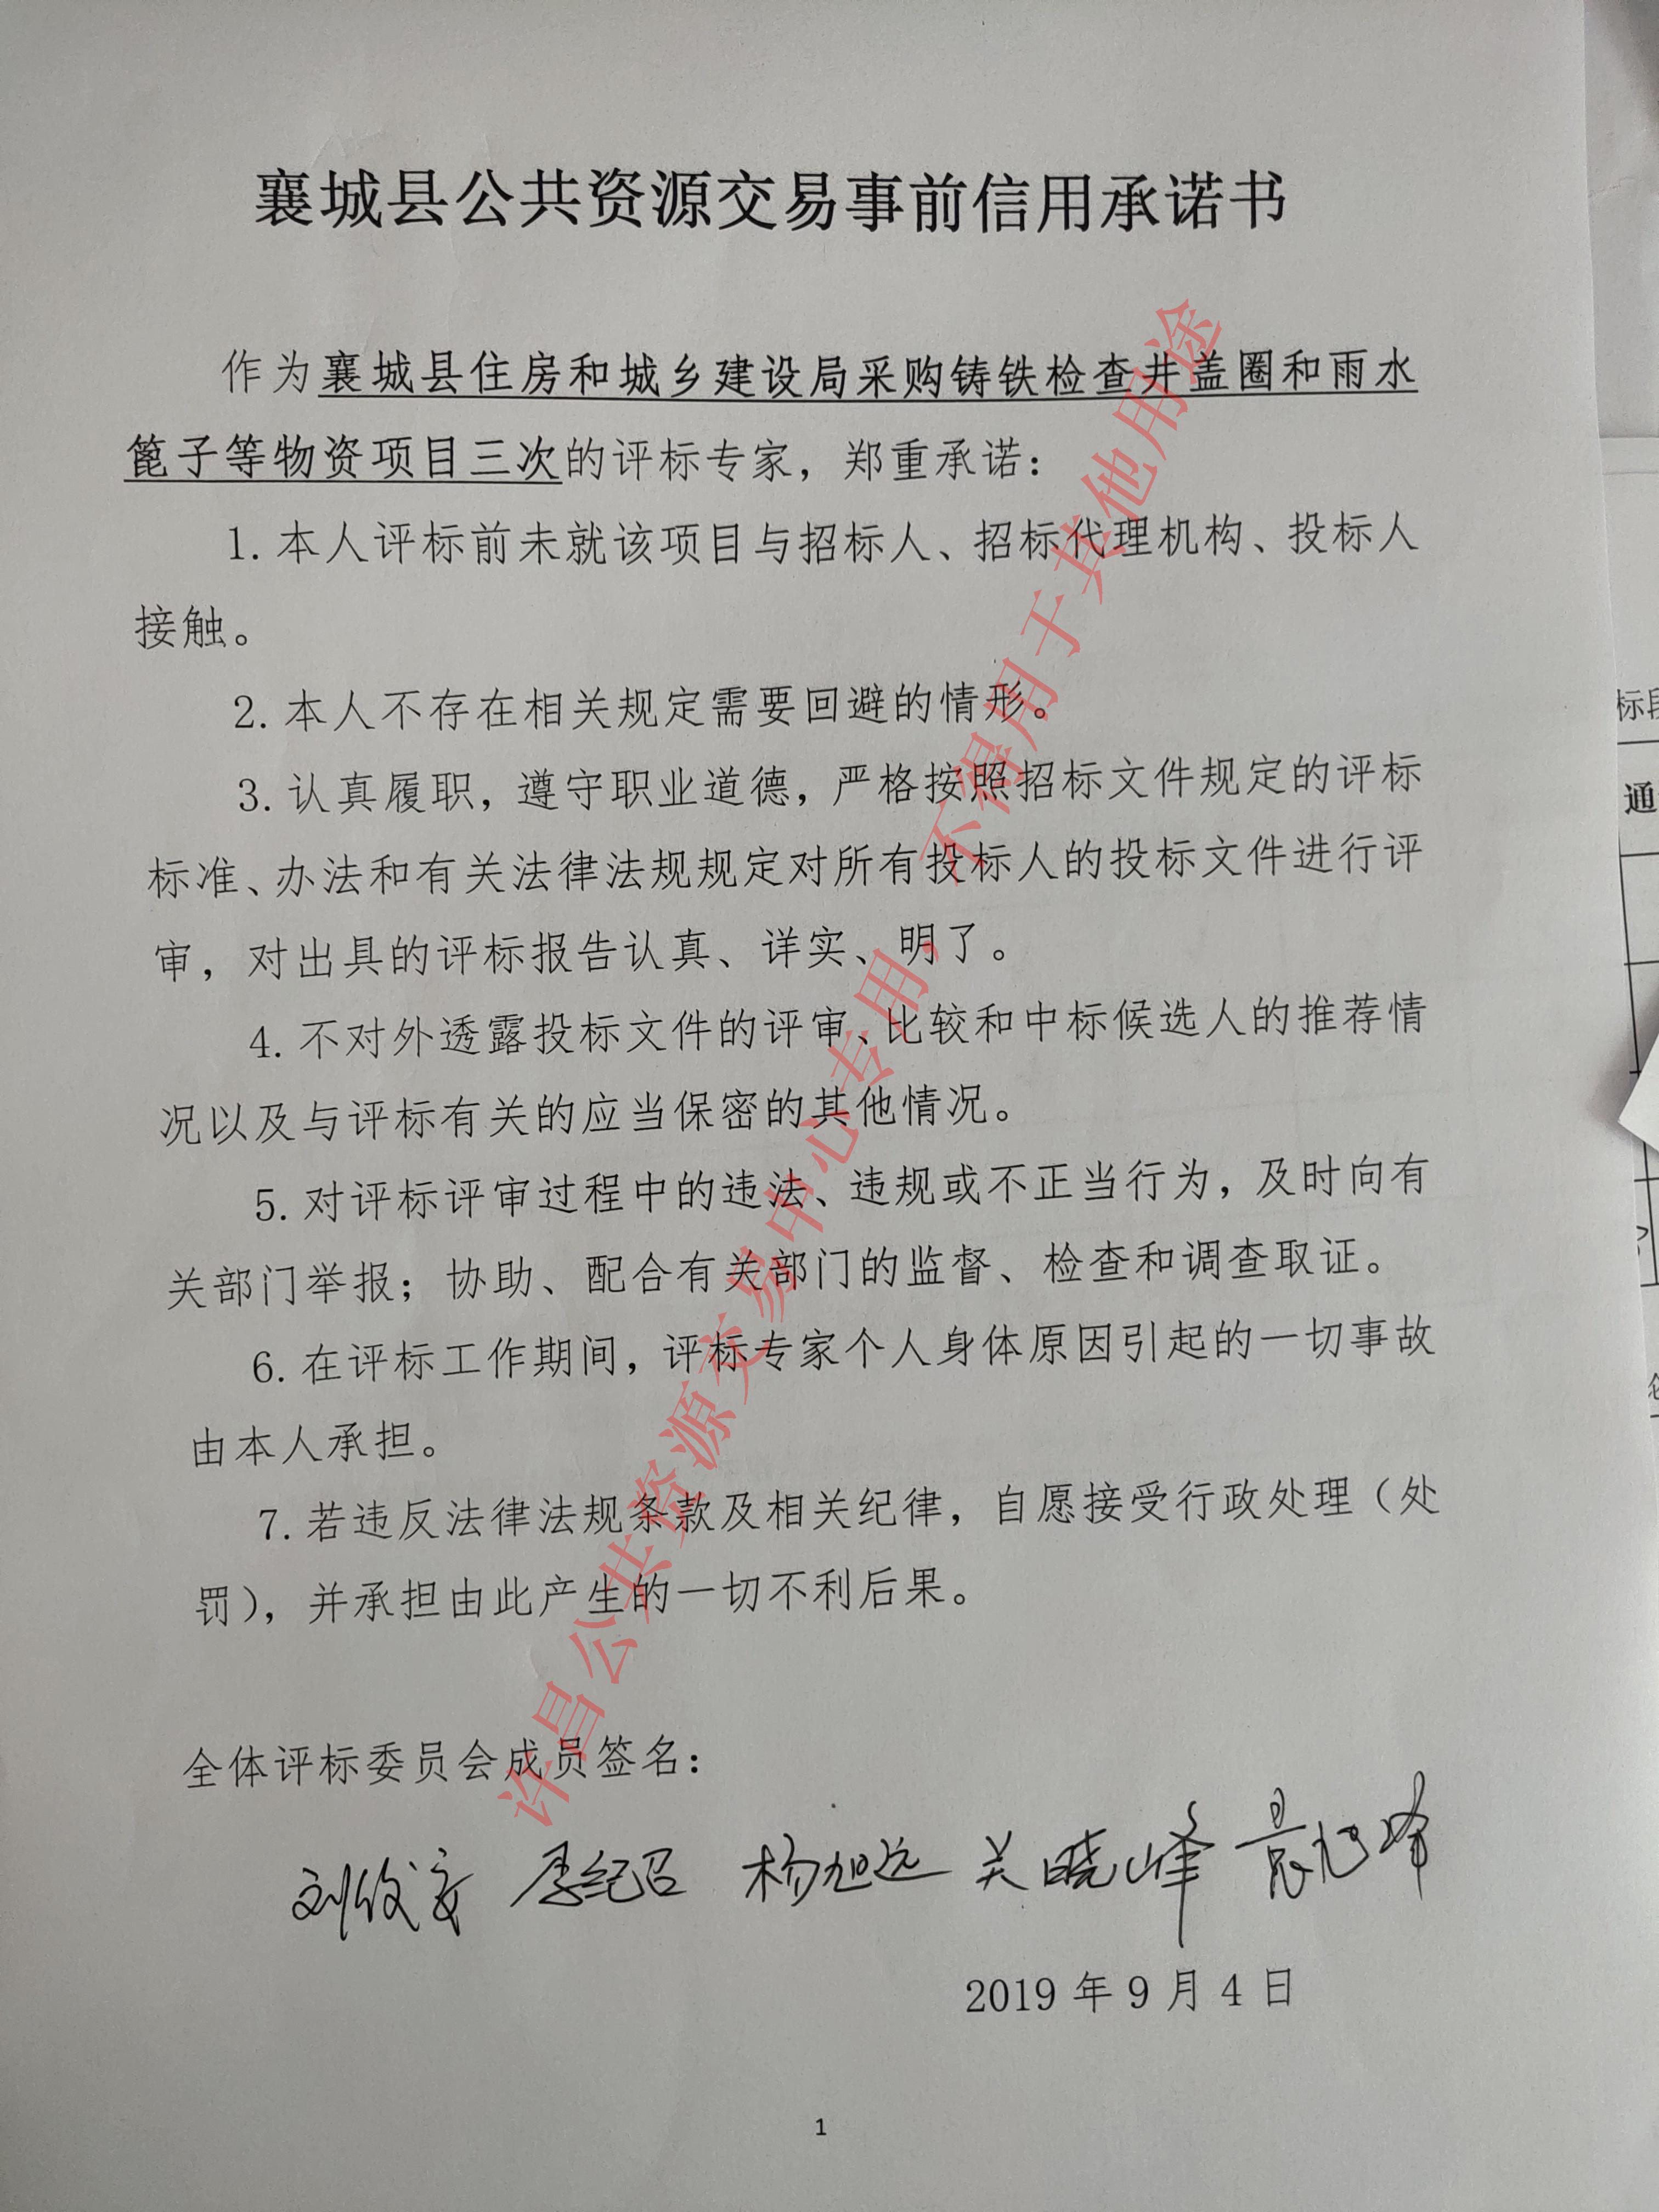 襄城县公共资源交易事前信用承诺书
作为襄城县住房和城乡建设局采购铸铁检查井盖圈和雨水
篦子等物资项目三次的评标专家，郑重承诺：
1.本人评标前未就该项目与招标人、招标代理机构、投标人
接触。
2.本人不存在相关规定需要回避的情形。
3.认真履职，遵守职业道德，严格按照招标文件规定的评标
标准、办法和有关法律法规规定对所有投标人的投标文件进行评
审，对出具的评标报告认真、详实、明了。
4.不对外透露投标文件的评审、比较和中标候选人的推荐情
况以及与评标有关的应当保密的其他情况。
5.对评标评审过程中的违法、违规或不正当行为，及时向有
关部门举报；协助、配合有关部门的监督、检查和调查取证。
6.在评标工作期间，评标专家个人身体原因引起的一切事故
由本人承担。
7.若违反法律法规条款及相关纪律，自愿接受行政处理（处
罚），并承担由此产生的一切不利后果。
全体评标委员会成员签名：
李纪召 杨旭远 关晓峰
2019年9月4日
1
许昌公共资源交易中心专用，不得用于其他用途
标段
通